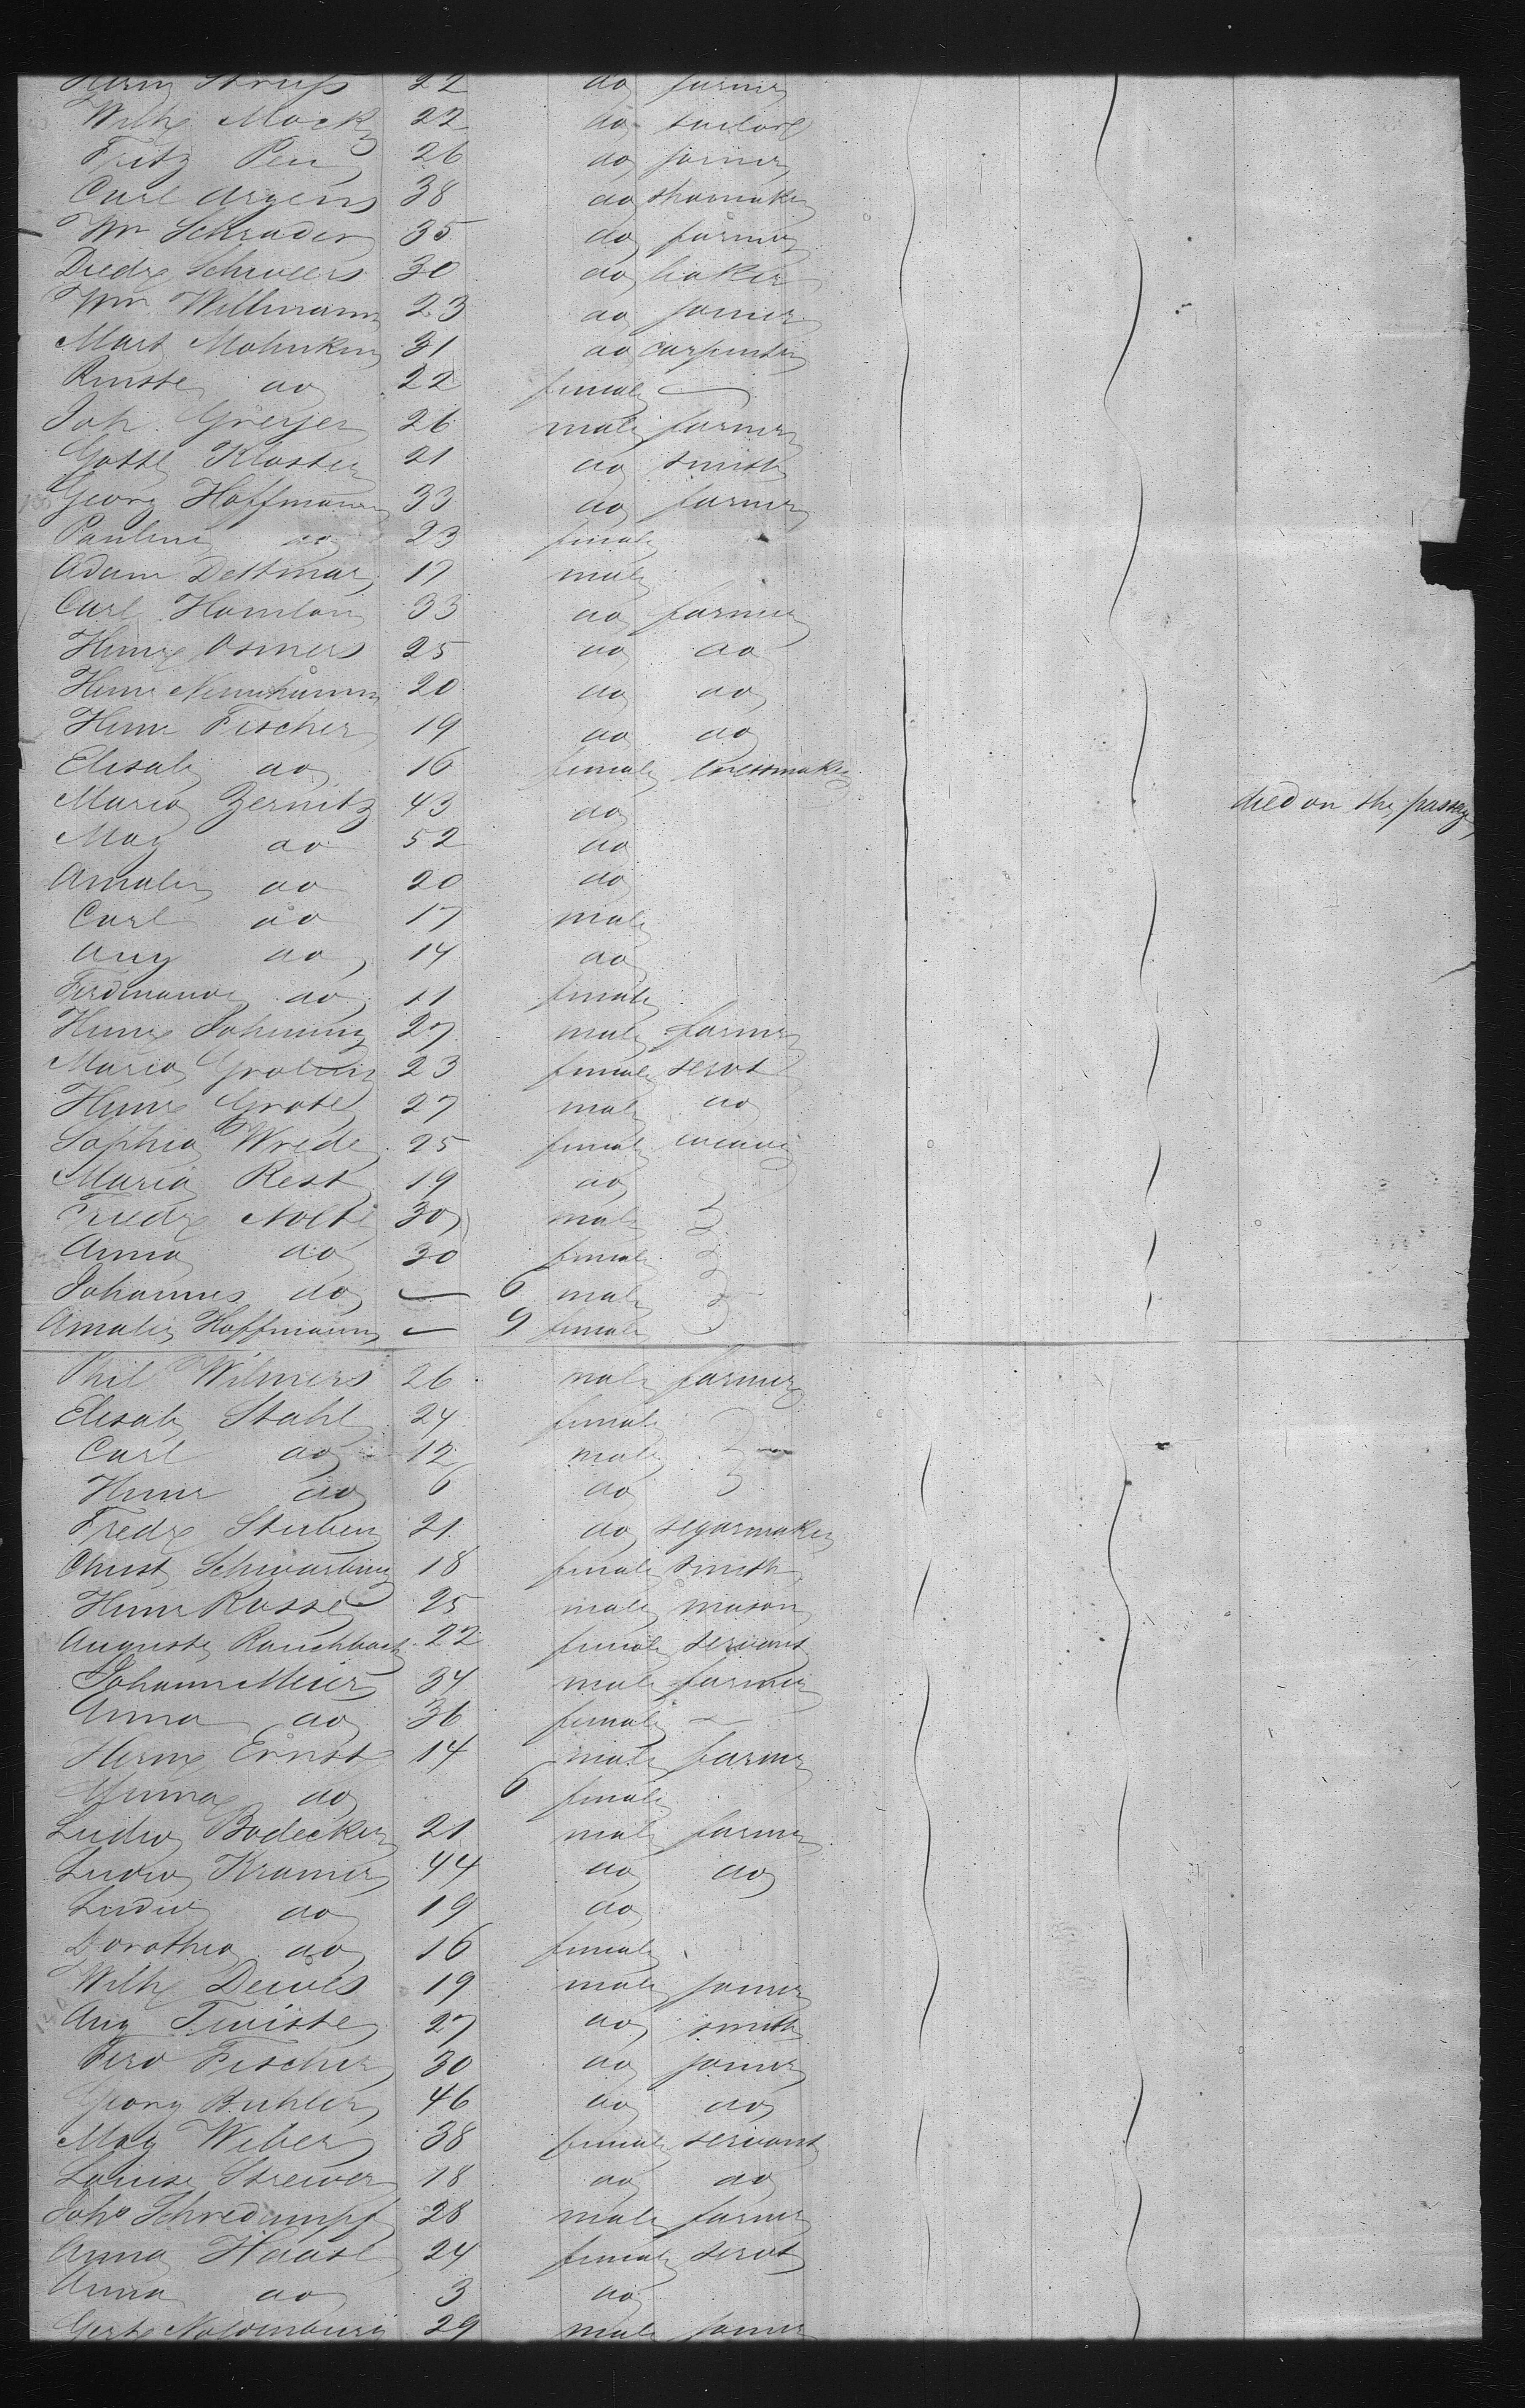 Herm Struss 22 do farmer
Wilh Mack 22 do tailor
Fritz Pein 26 do joiner
Carl Argens 38 do shoemaker
Wm Schrader 35 do farmer
Diedr Schweers 30 do baker
Wm Willmann 23 do joiner
Mart Mohnken 31 do carpenter
do 22 female —
Joh. Greyer 26 male farmer
Gottl Kloster 21 do smith
Georg Hoffmann 33 do farmer
Pauline do 23 female
Adam Dettmar 17 male
Carl 33 do farmer
Henry Osmers 25 do do
Henr 20 do do
Henr Fischer 19 do do
Elisab do 16 female dressmaker
Maria Zernitz 43 do died on the passage
Mag do 52 do
Amalie do 20 do
Carl do 17 male
Aug do 14 do
Ferdinande do 11 female
Henry Johning 27 male farmer
Maria 23 female servt
Henry Grote 27 male do
Sophia Wrede 25 female
Maria Rest 19 do
Friedr Nolte 30 male
Anna do 30 female
Johannes do — 6 male
Amalie Hoffmann — 9 female
Phil Wilmers 26 male farmer
Elisab Stahl 24 female
Carl do 12 male
Henr do 6 do
Fredr Stuben 21 do segarmaker
Christ 18 female smith
Henr Rosse 25 male mason
Auguste Rauchbach 22 female servant
Johann Meier 34 male farmer
Anna do 36 female —
Herm Ernst 14 male farmer
Minna do 6 female
Ludw Bodecker 21 male farmer
Ludw Kramer 44 do do
Ludw do 19 do
Dorothea do 16 female
Wilh Dewes 19 male joiner
Aug Twiste 27 do smith
Ferd Fischer 30 do joiner
Georg Buhler 46 do do
Mag Weber 38 female servant
Louise Strewer 18 do do
Joh Schredumpf 28 male farmer
Anna Haase 24 female servt
Anna do 3 do
29 male joiner